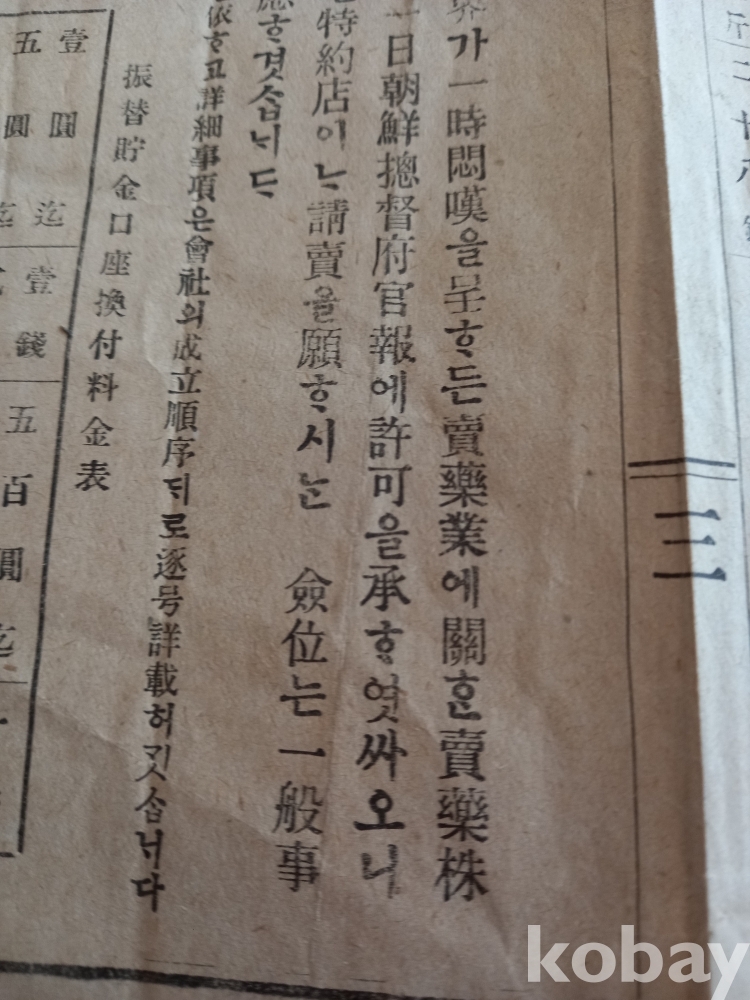 二十六
三
界가一時悶嘆을呈ᄒᆞ든賣藥業에關ᄒᆞᆫ賣藥株
一日朝鮮摠督府官報에許可을承ᄒᆞ엿싸오니
特約店이ᄂᆞ請賣을願ᄒᆞ시ᄂᆞᆫ 僉位는一般事
應ᄒᆞ겟ᄉᆞᆸ니ᄃᆞ
依ᄒᆞ고詳細事項은會社의成立順序ᄃᆡ로逐号詳載허깃ᄉᆞᆸ니다
振替貯金口座換付料金表
壹圓迄
五圓迄
壹錢
五百圓迄
kobay